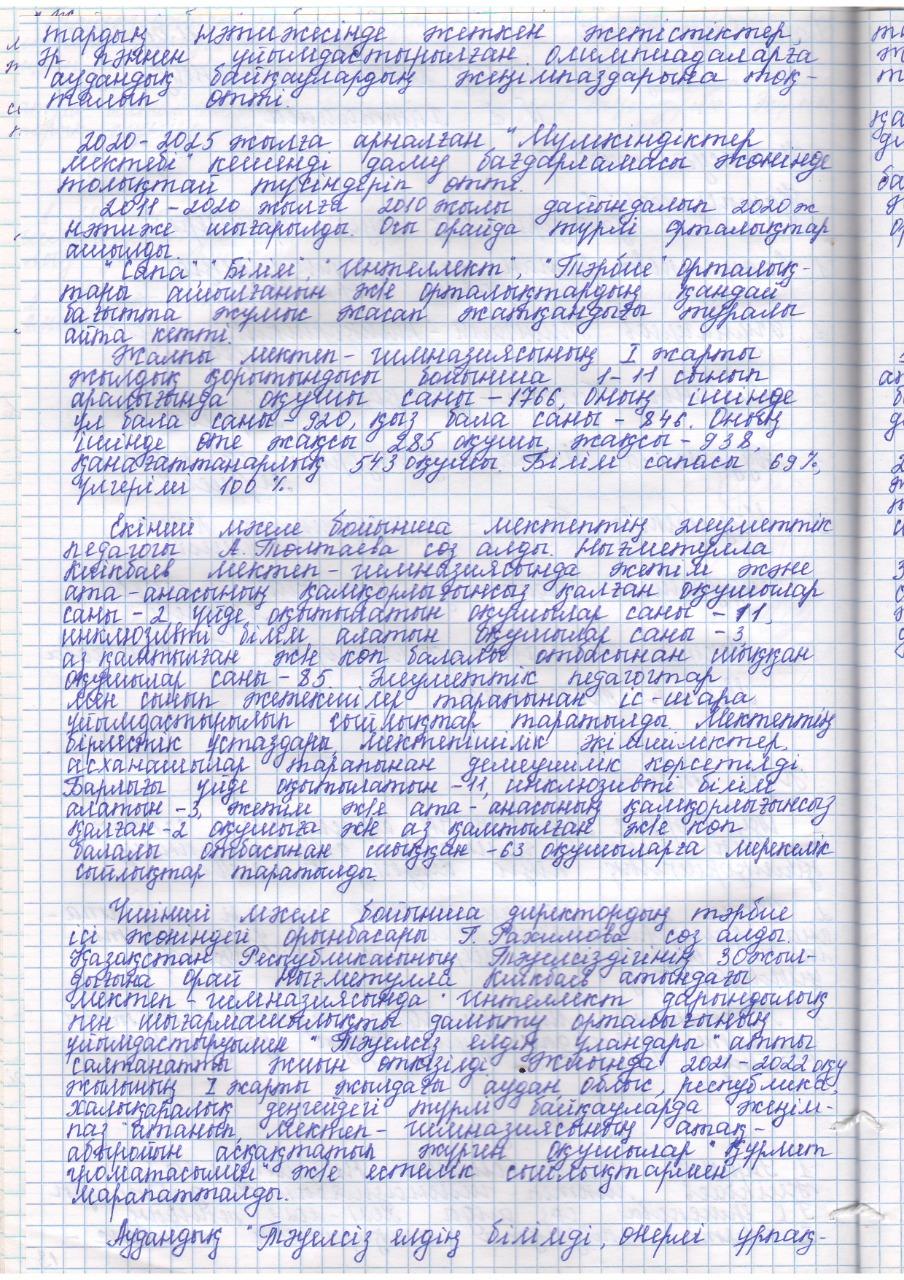 тардың нәтижесінде жеткен жетістіктер,
әр пәннен ұйымдастырылған олимпиадаларға
аудандық байқаулардың жеңімпаздарына тоқ-
талып өтті.
2020-2025 жылға арналған "Мүмкіндіктер
мектебі" кешенді даму бағдарламасы жөнінде
толықтай түсіндеріп өтті.
2011-2020 жылға 2010 жылы дайындалып 2020ж
нәтиже шығарылды. Осы орайда түрлі орталықтар
ашылды.
"Сапа" "Білім", "Интеллект", "Тәрбие" орталық-
тары ашылғанын ж/е орталықтардың қандай
бағытта жұмыс жасап жатқандығы туралы
айта кетті.
Жалпы мектеп-гимназиясының I жарты
жылдық қорытындысы бойынша 1-11 сынып
аралығында оқушы саны-1766, оның ішінде
ұл бала саны-920, қыз бала саны-846. Оның
ішінде өте жақсы 285 оқушы, жақсы-938,
қанағаттанарлық 543 оқушы. Білім сапасы 69%,
үлгерілм 100%.
Екінші мәселе бойынша мектептің әлеуметтік
педагогы А. Толпаева сөз алды. Нығметулла
Киікбаев мектеп-гимназиясында жетім және
ата-анасының қамқорлығынсыз қалған оқушылар
саны-2, үйде оқытылатын оқушылар саны-11,
инклюзивті білім алатын оқушылар саны-3,
аз қамтылған ж/е көп балалы отбасынан шыққан
оқушылар саны-85. Әлеуметтік педагогтар
мен сынып жетекшілер тарапынан іс-шара
ұйымдастырылып сыйлықтар таратылды. Мектептің
бірлестік ұстаздары, мектепішілік әкімшіліктер,
асханашылар тарапынан демеушілік көрсетілді.
Барлығы үйде оқытылатын-11, инклюзивті білім
алатын-3, жетім ж/е ата-анасының қамқорлығынсыз
қалған-2 оқушыға ж/е аз қамтылған ж/е көп
балалы отбасынан шыққан-63 оқушыларға мерекелік
сыйлықтар таратылды.
Үшінші мәселе бойынша директордың тәрбие
ісі жөніндегі орынбасары Г. Рахимова сөз алды.
Қазақстан Республикасының Тәуелсіздігінің 30жыл-
дығына орай Нығметулла Киікбаев атындағы
мектеп-гимназиясында "Интеллект дарындылық
пен шығармашылықты дамыту орталығының
ұйымдастыруымен "Тәуелсіз елдің ұландары" атты
салтанатты жиын өткізілді. Жиында 2021-2022 оқу
жылының I жарты жылдағы аудан, облыс, республика,
халықаралық деңгейдегі түрлі байқауларда жеңім-
паз атанып мектеп-гимназиясының атақ-
абыройын асқақтатып жүрген оқушылар "Құрмет
громатасымен" ж/е естелік сыйлықтармен
марапатталды.
Аудандық "Тәуелсіз елдің білімді, өнерлі ұрпақ-